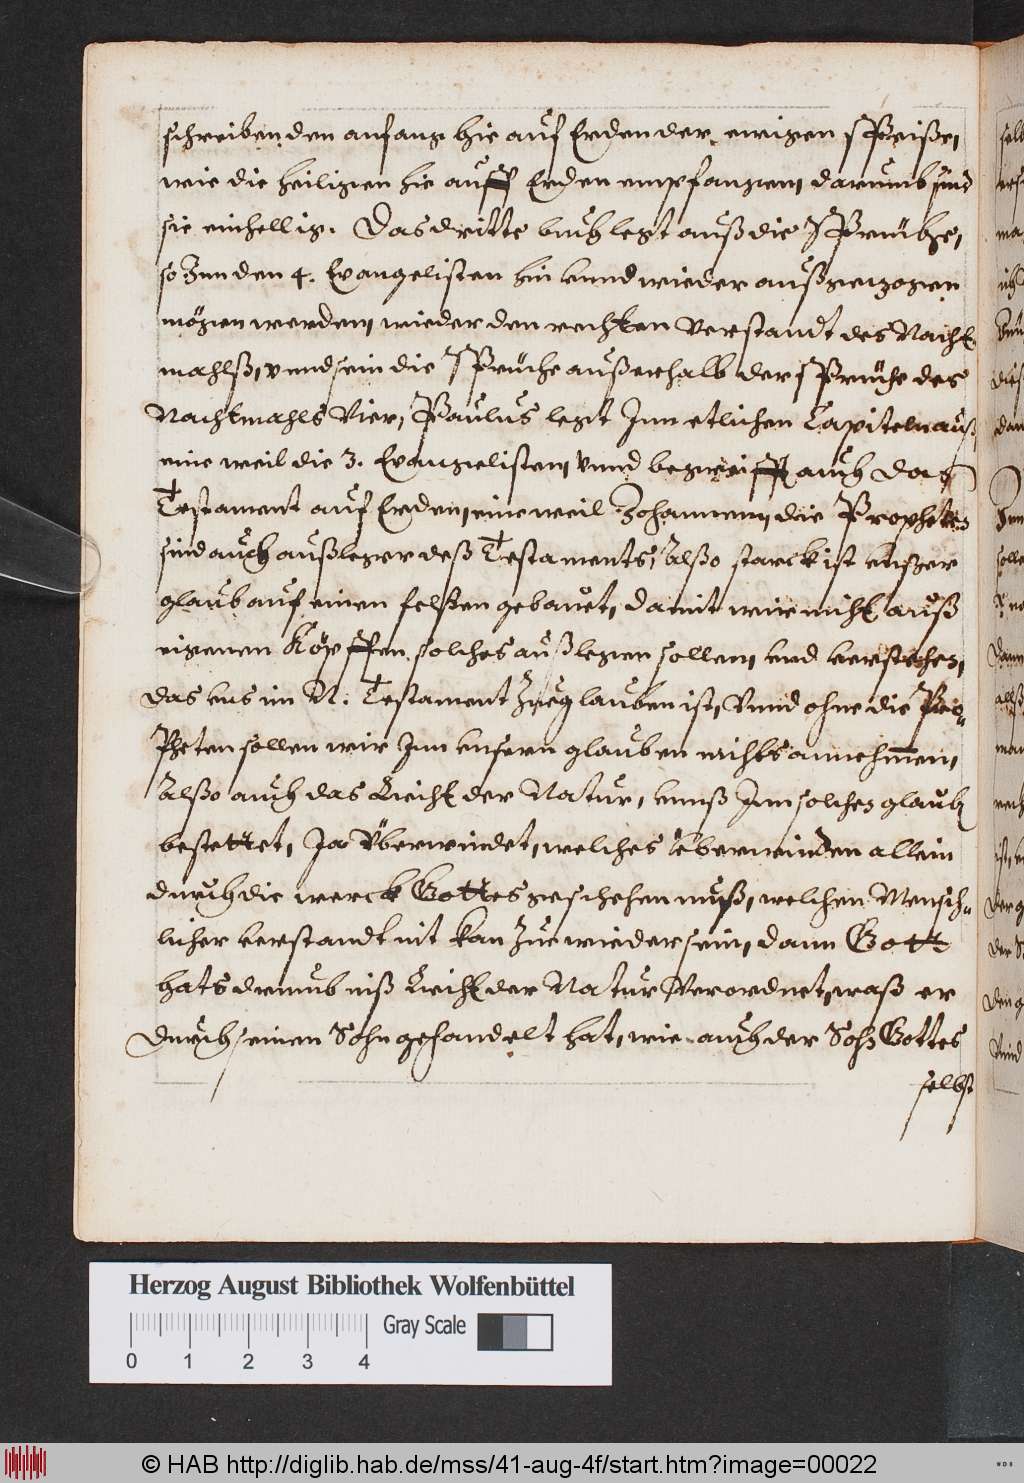 schreiben den anfang hie auf Erden der ewigen speiße,
wie die heiligen hie auff Erden empfangen, darumb sind
sie einhellig. Das dritte buch legt auß die Sprüche,
so Inn den 4. Evangelisten hin unnd wieder außgezogen
mögen werden, wieder den rechten verstandt des Nacht
mahlß, unnd sein die Sprüche außerhalb der sprüche des
Nachtmahls Vier, Paulus legt Inn etlichen Capiteln auß
eine weil die 3. Evangelisten, unnd begreifft auch das
Testament auf Erden, eine weil Johannem, die Propheten
sind auch außleger deß Testaments, Alßo starck ist unßer
glaub auf einen felßen gebauet, damit wir nicht auß
eigenen Köpffen solches außlegen sollen, und verstehen,
das uns im N. Testament Zueglauben ist, Unnd ohne die Pro-
Pheten sollen wir Inn unsern glauben nichts annehmen,
Alßo auch das Liecht der Natur, muß Inn solchen glaub
bestettet, Ja Überwindet, welches überwinden allein
durch die werck Gottes geschehen muß, welchen Mensch-
licher verstandt nit kan Zue wieder sein, dann Gott
hats dem Liecht der Natur Verordnet, waß er
Durch seinen Sohn gehandelt hat, wie auch der Sohn Gottes
selbst
Herzog August Bibliothek Wolfenbüttel
Gray Scale
0 1 2 3 4
© HAB http://diglib.hab.de/mss/41-aug-4f/start.htm?image=00022